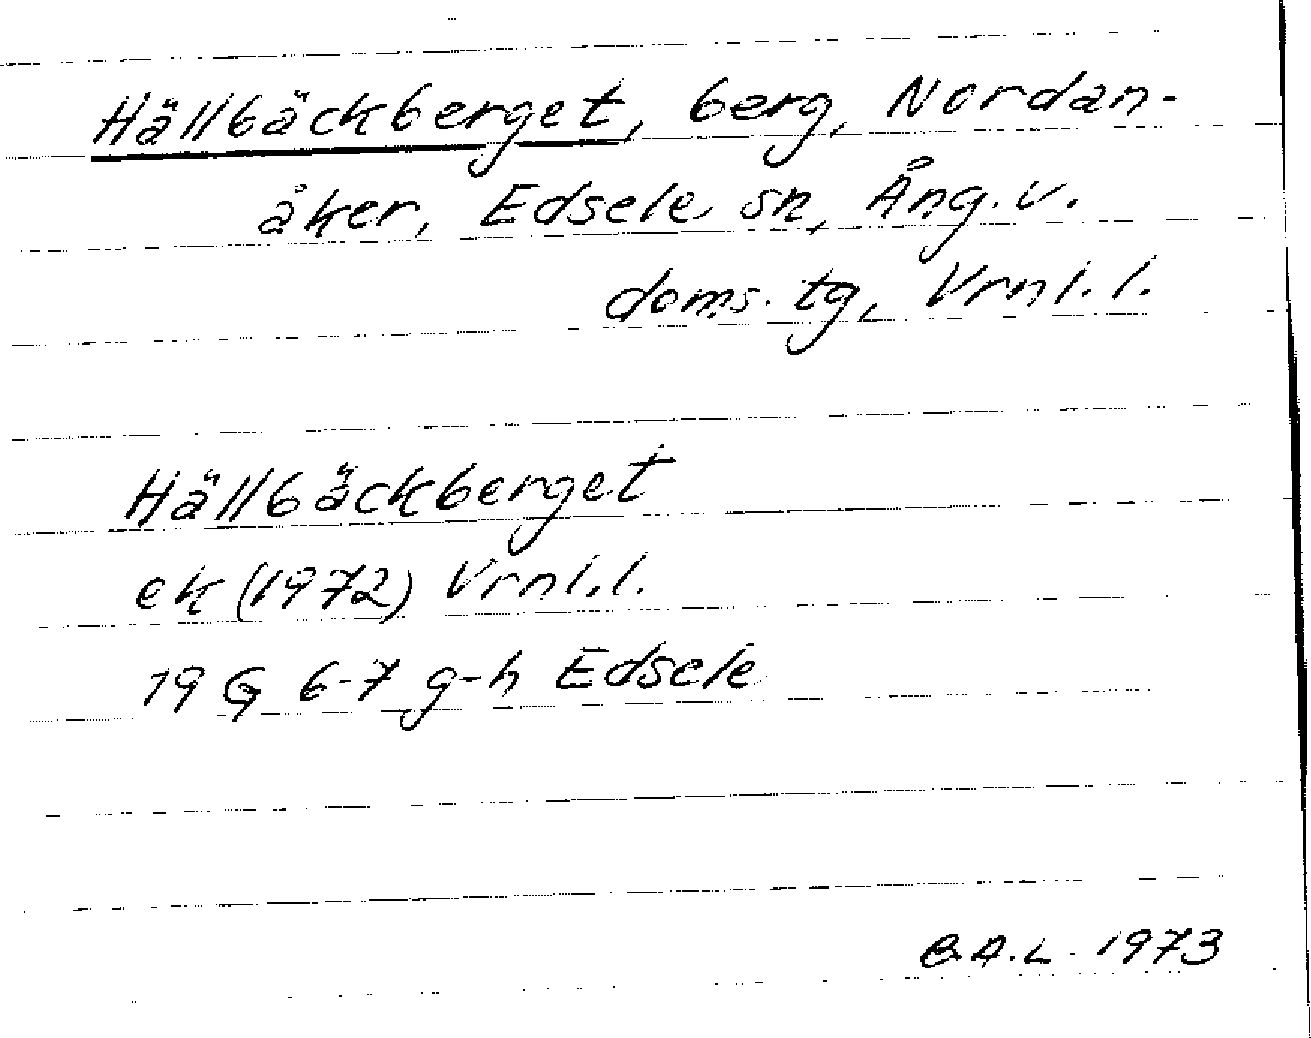 Hällbäckberget, berg, Nordan-
åker, Edsele sn, Ång. v.
doms. tg, Vrnl. l.
Hällbäckberget
ek (1972) Vrnl. l.
19 G 6-7 g-h Edsele
B.A.L. 1973